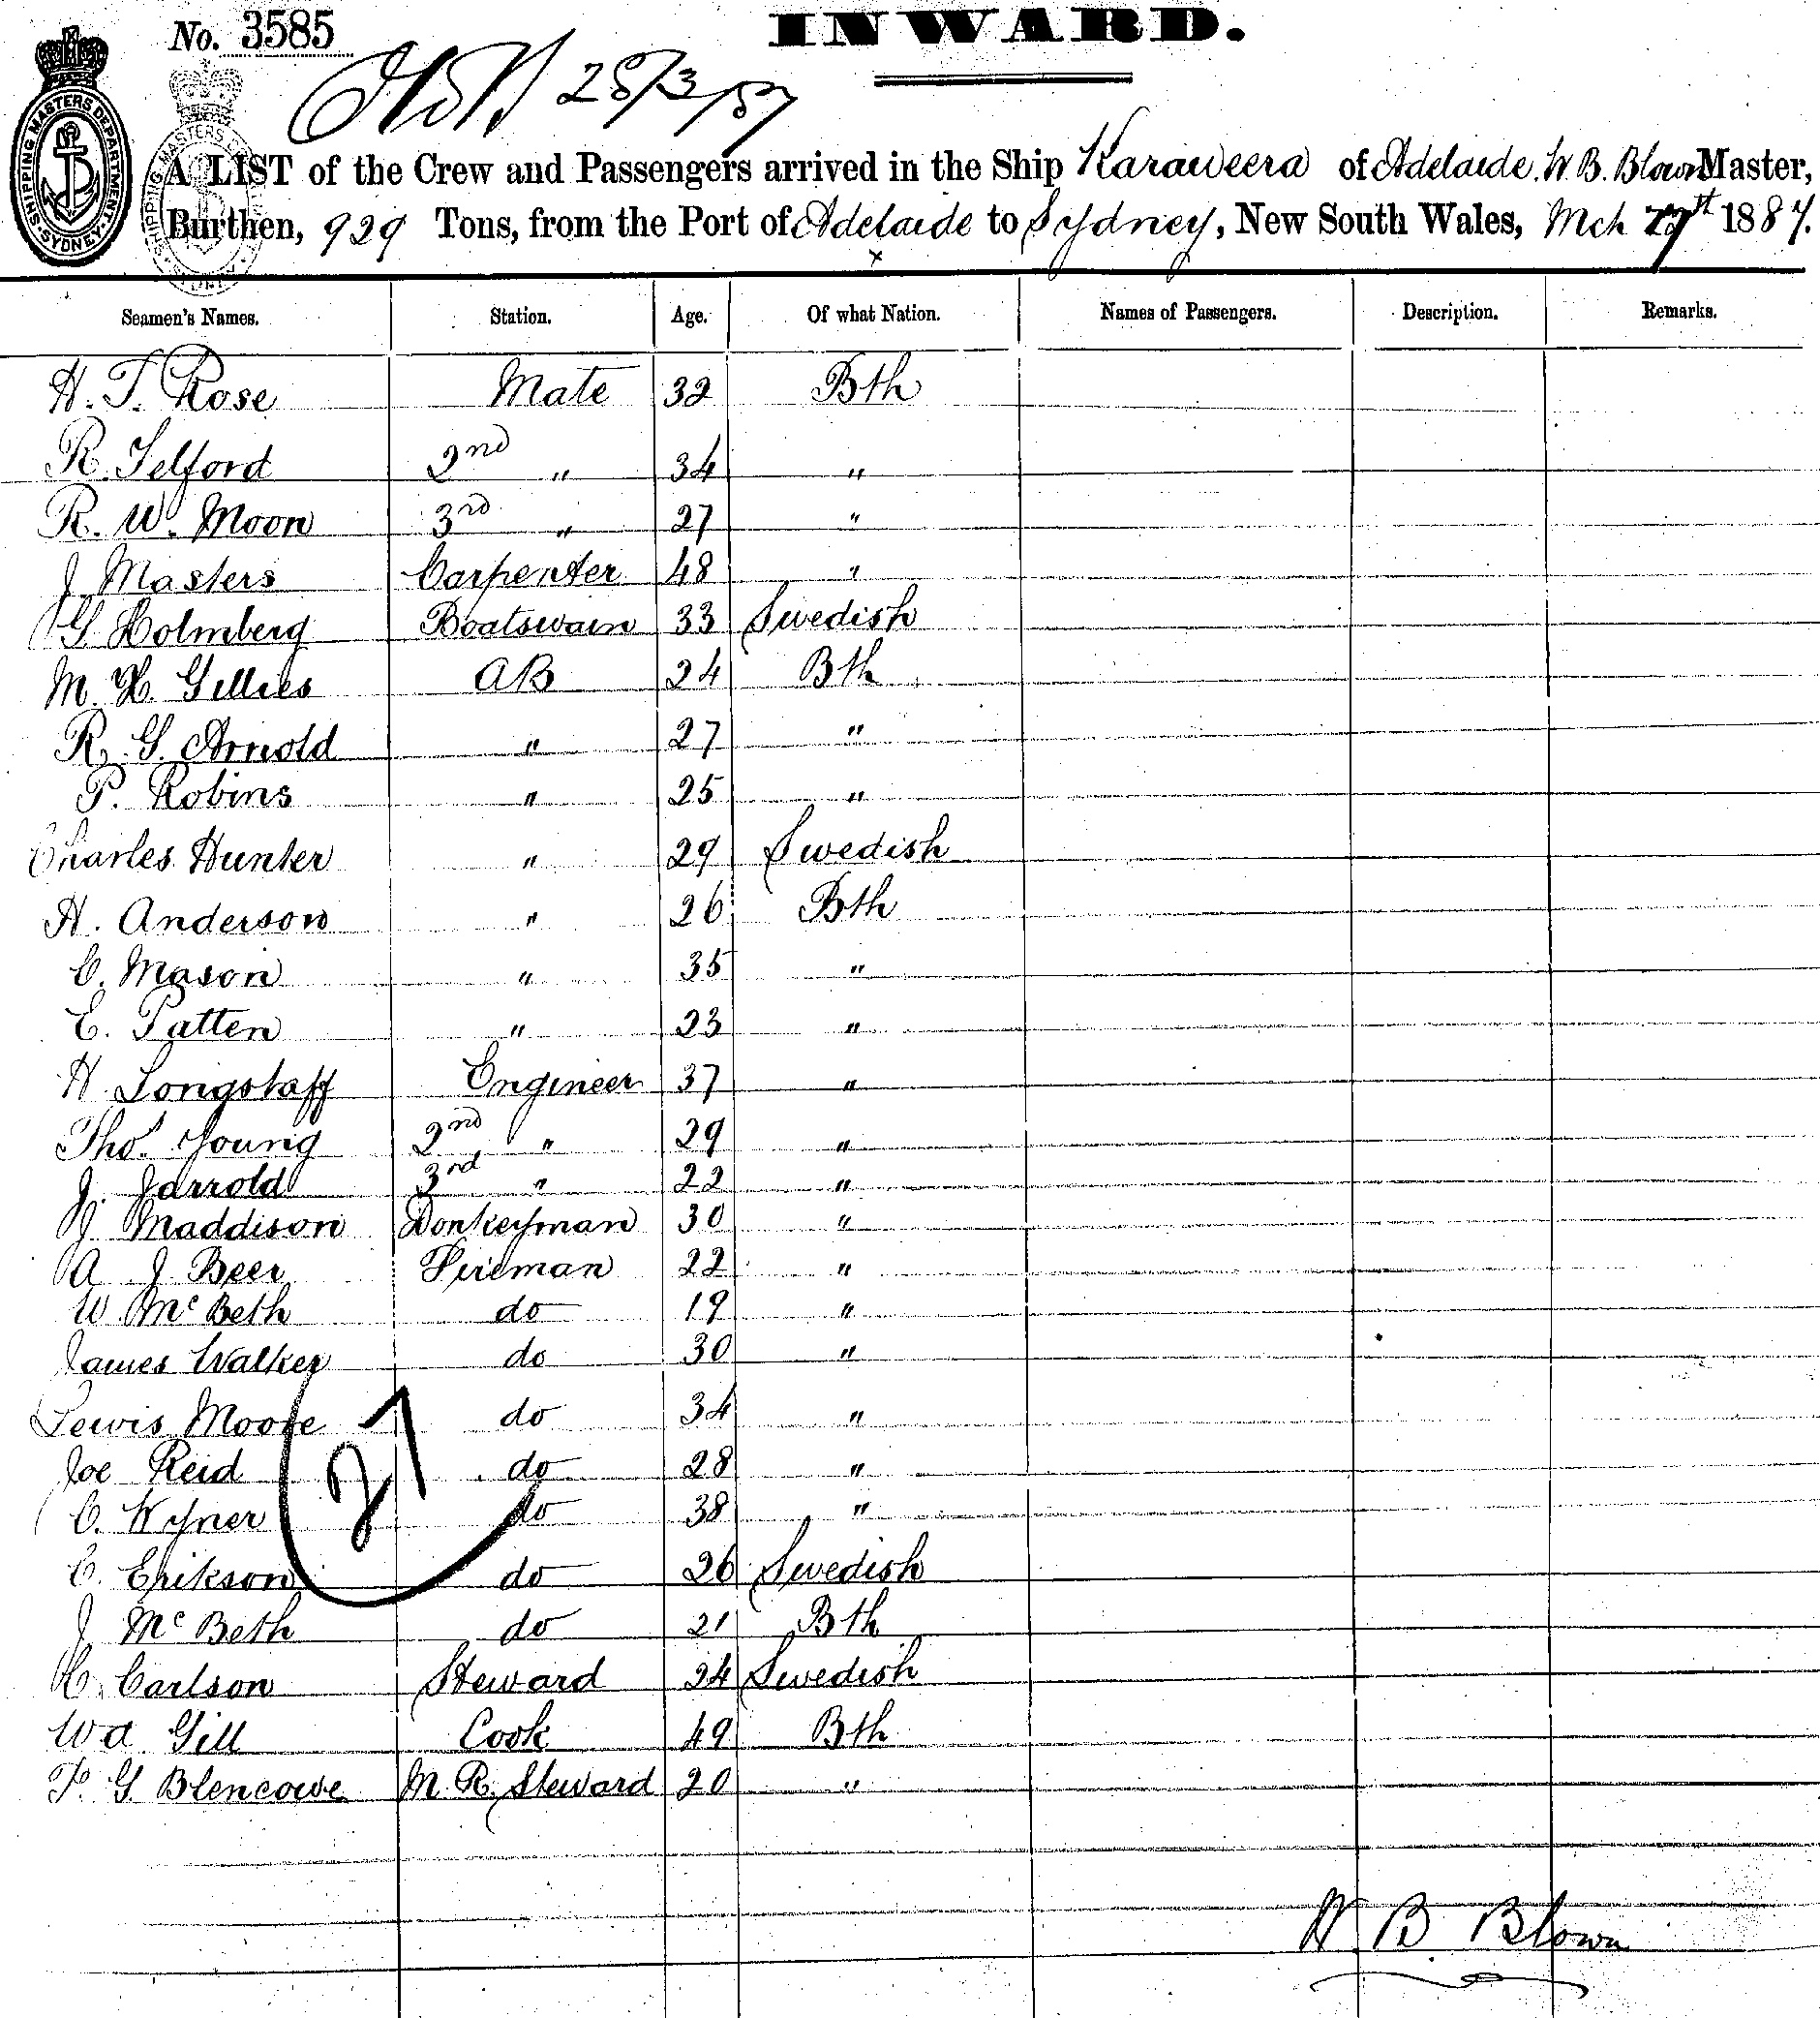 No. 3585
INWARD.
28/3/87
SHIPPING MASTERS DEPARTMENT · SYDNEY ·
A LIST of the Crew and Passengers arrived in the Ship Karaweera of Adelaide, W. B. Blown Master,
Burthen, 929 Tons, from the Port of Adelaide to Sydney, New South Wales, Mch 1887.
Seamen's Names. Station. Age. Of what Nation. Names of Passengers. Description. Remarks.
H. T. Rose Mate 32 Bth
R. Telford 2nd " 34 "
R. W. Moon 3rd " 27 "
J Masters Carpenter 48 "
G. Holmberg Boatswain 33 Swedish
M. H. Gillies AB 24 Bth
R. G. Arnold " 27 "
P. Robins " 25 "
Charles Hunter " 29 Swedish
H. Anderson " 26 Bth
C. Mason " 35 "
E. Patten " 23 "
H. Longstaff Engineer 37 "
Thos. Young 2nd " 29 "
J. Jarrold 3rd " 22 "
J Maddison Donkeyman 30 "
A J Beer Fireman 22 "
W McBeth do 19 "
James Walker do 30 "
Lewis Moore do 34 "
Joe Reid do 28 "
C. Kyner do 38 "
C. Erikson do 26 Swedish
J McBeth do 21 Bth
C. Carlson Steward 24 Swedish
Wa Gill Cook 49 Bth
F. G. Blencowe M. R. Steward 20 "
27
W B Blown